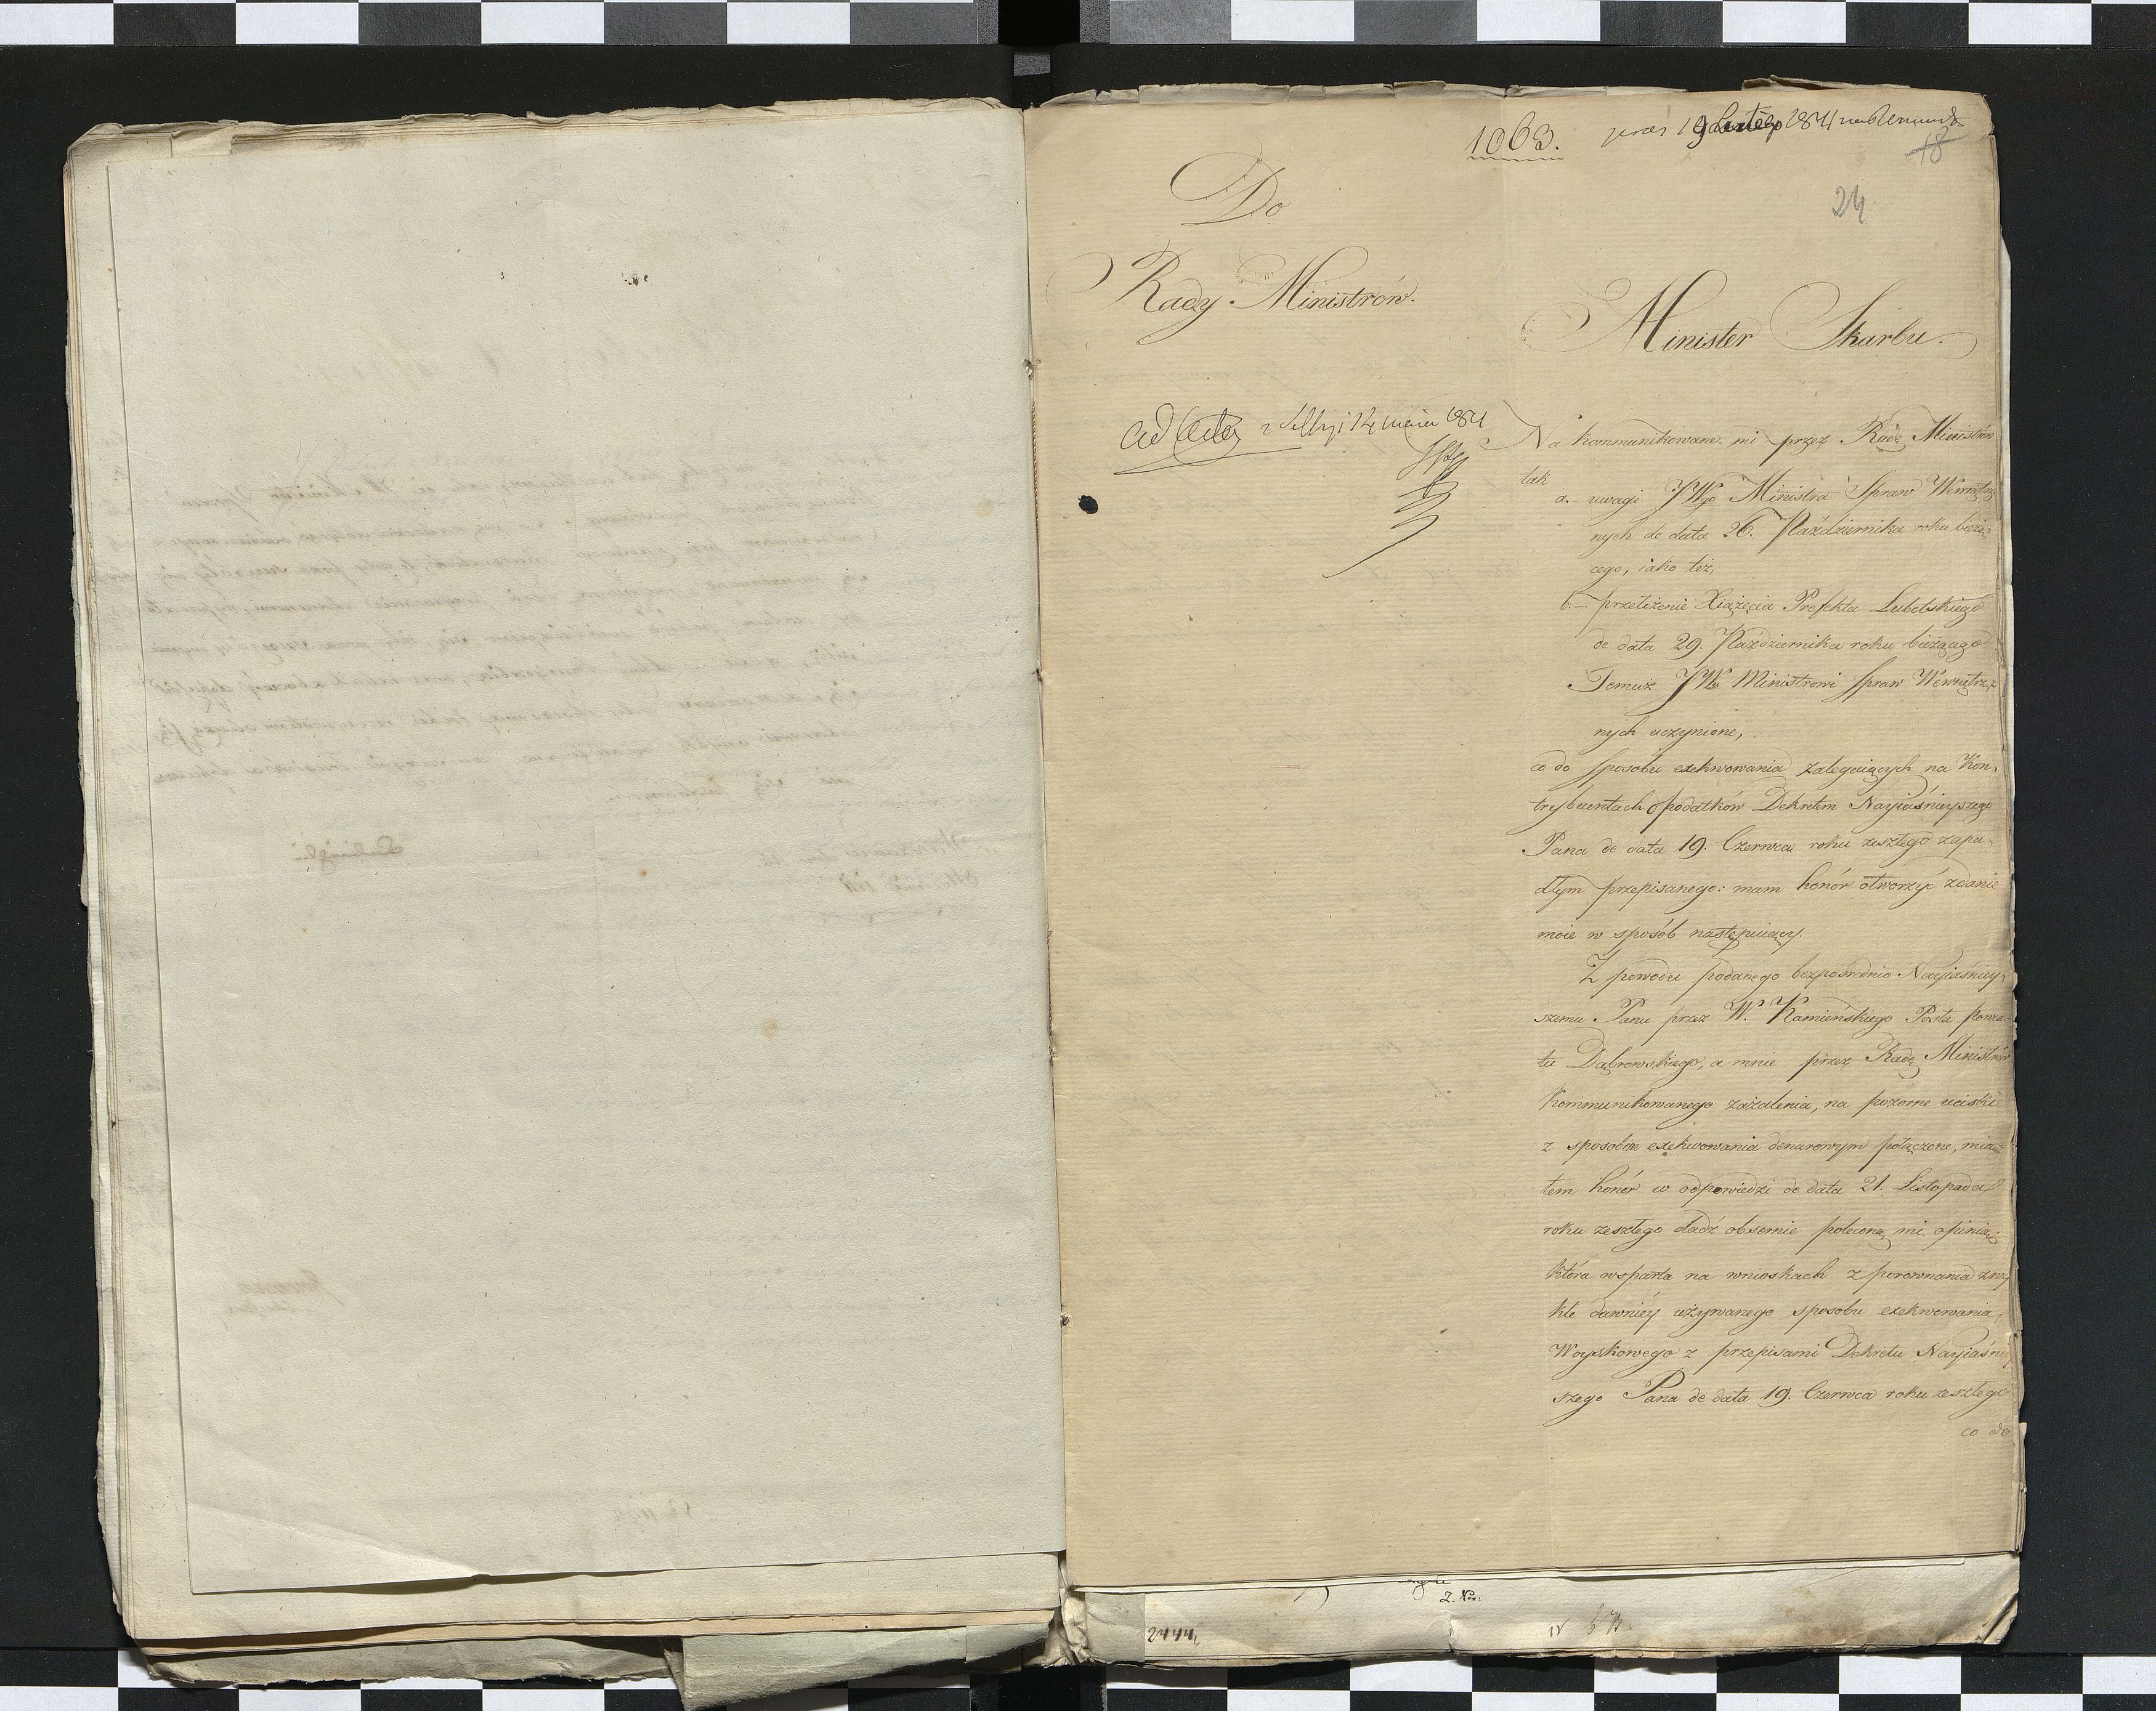 1063.
18
24
Do
Rady Ministrów.
Minister Skarbu.
ad acta
Na kommunikowane mi przez Radę Ministrów
tak
a. uwagi JWgo Ministra Spraw Wewnętrz-
nych de data 26. Października roku bieżą-
cego, iako też,
b. przełożenie Xiążęcia Prefekta Lubelskiego
de data 29. Października roku bieżącego
Temuż JWu Ministrowi Spraw Wewnętrz-
nych uczynione,
co do sposobu exekwowania zalegaiących na Kon-
trybuentach podatków Dekretem Nayiaśnieyszego
Pana de data 19. Czerwca roku zeszłego zapa-
dłym przepisanego: mam honór otworzyć zdanie
moie w sposób następuiący.
Z powodu podanego bezpośrednio Nayiaśniey-
szemu Panu przez W. Kamieńskiego Posła Powia-
tu Dąbrowskiego, a mnie przez Radę Ministrów
kommunikowanego zażalenia, na pozorne uciski
z sposobem exekwowania denarowym połączone, mia-
łem honór w odpowiedzi de data 21. Listopada
roku zeszłego dadź obszernie poleconą mi opinią,
która wsparta na wnioskach z porównania zwy-
kle dawniéy używanego sposobu exekwowania
Woyskowego z przepisami Dekretu Nayiaśniey-
szego Pana de data 19. Czerwca roku zeszłego
co do
2444